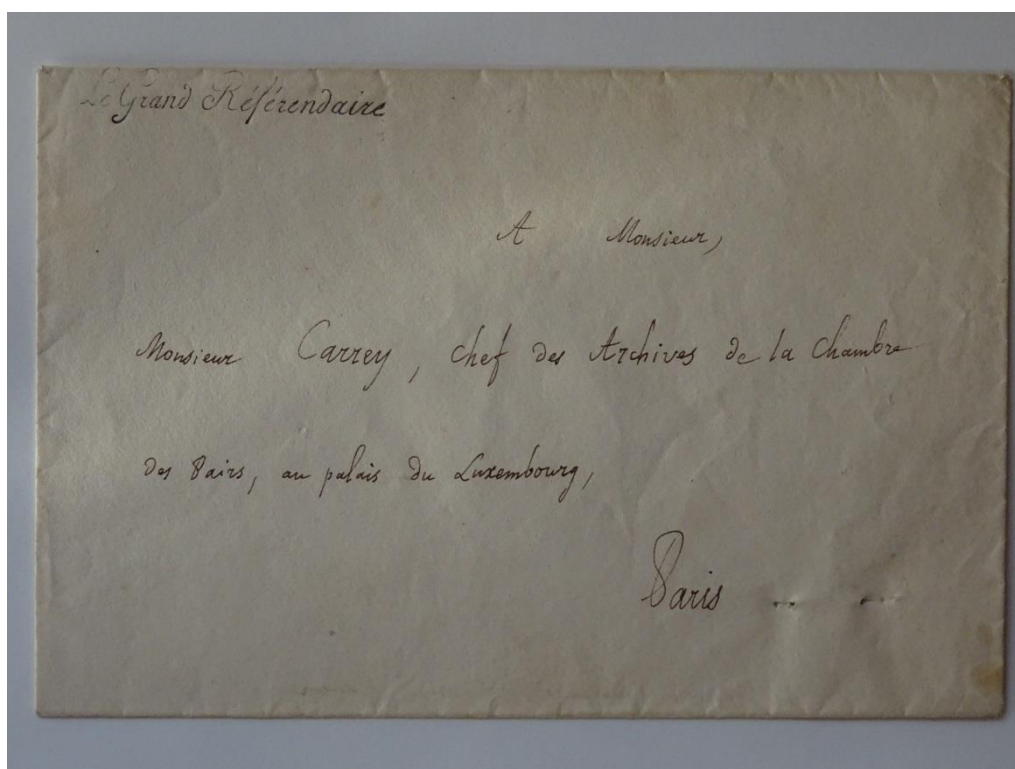 Le Grand Référendaire
A Monsieur,
Monsieur Carrey, chef des Archives de la Chambre
des Pairs, au palais du Luxembourg,
Paris